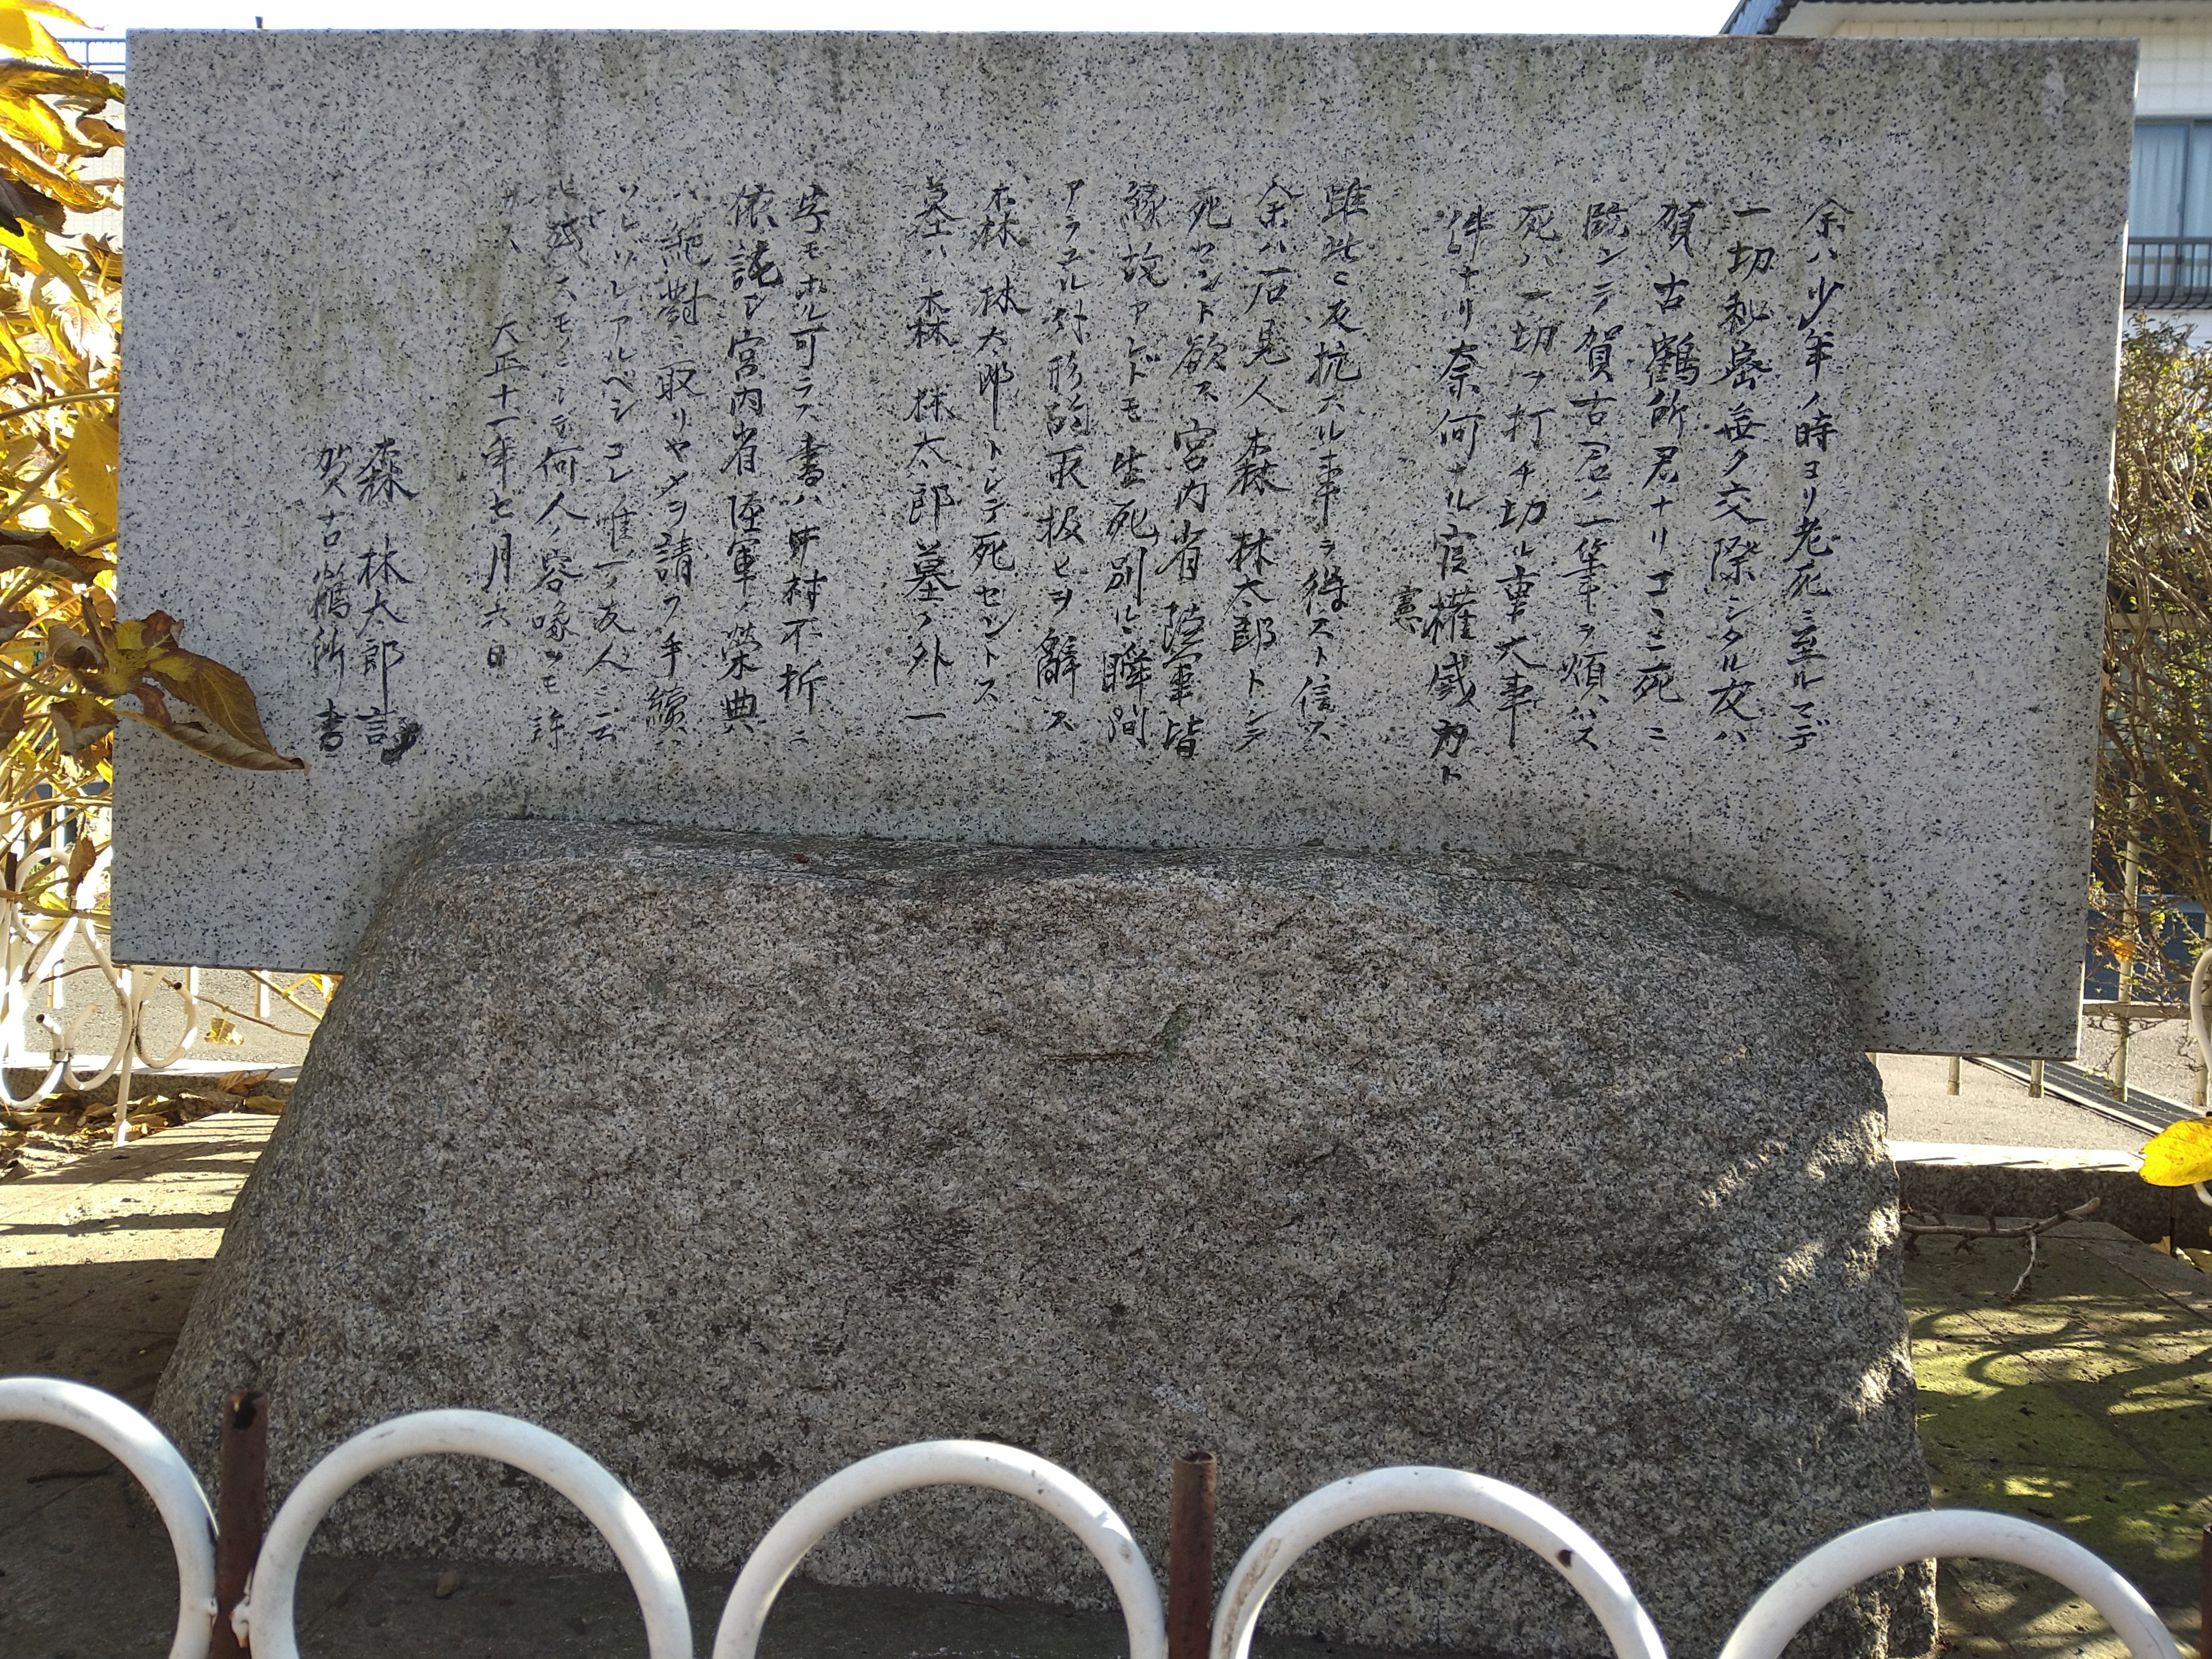 余ハ少年ノ時ヨリ老死ニ至ルマデ
一切秘密無ク交際シタル友ハ
賀古鶴所君ナリコヽニ死ニ
臨ンテ賀古君ノ一筆ヲ煩ハス
死ハ一切ヲ打チ切ル重大事
件ナリ奈何ナル官權威力ト
憲
雖此ニ反抗スル事ヲ得スト信ス
余ハ石見人森林太郎トシテ
死セント欲ス宮内省陸軍皆
縁故アレドモ生死別ルヽ瞬間
アラユル外形的取扱ヒヲ辭ス
森林太郎トシテ死セントス
墓ハ森林太郎墓ノ外一
字モホル可ラス書ハ中村不折ニ
依託シ宮内省陸軍ノ榮典
ハ絶對ニ取リヤメヲ請フ手續ハ
ソレゾレアルベシコレ唯一ノ友人ニ云
ヒ殘スモノニシテ何人ノ容喙ヲモ許
サス　大正十一年七月六日
森林太郎言
賀古鶴所書